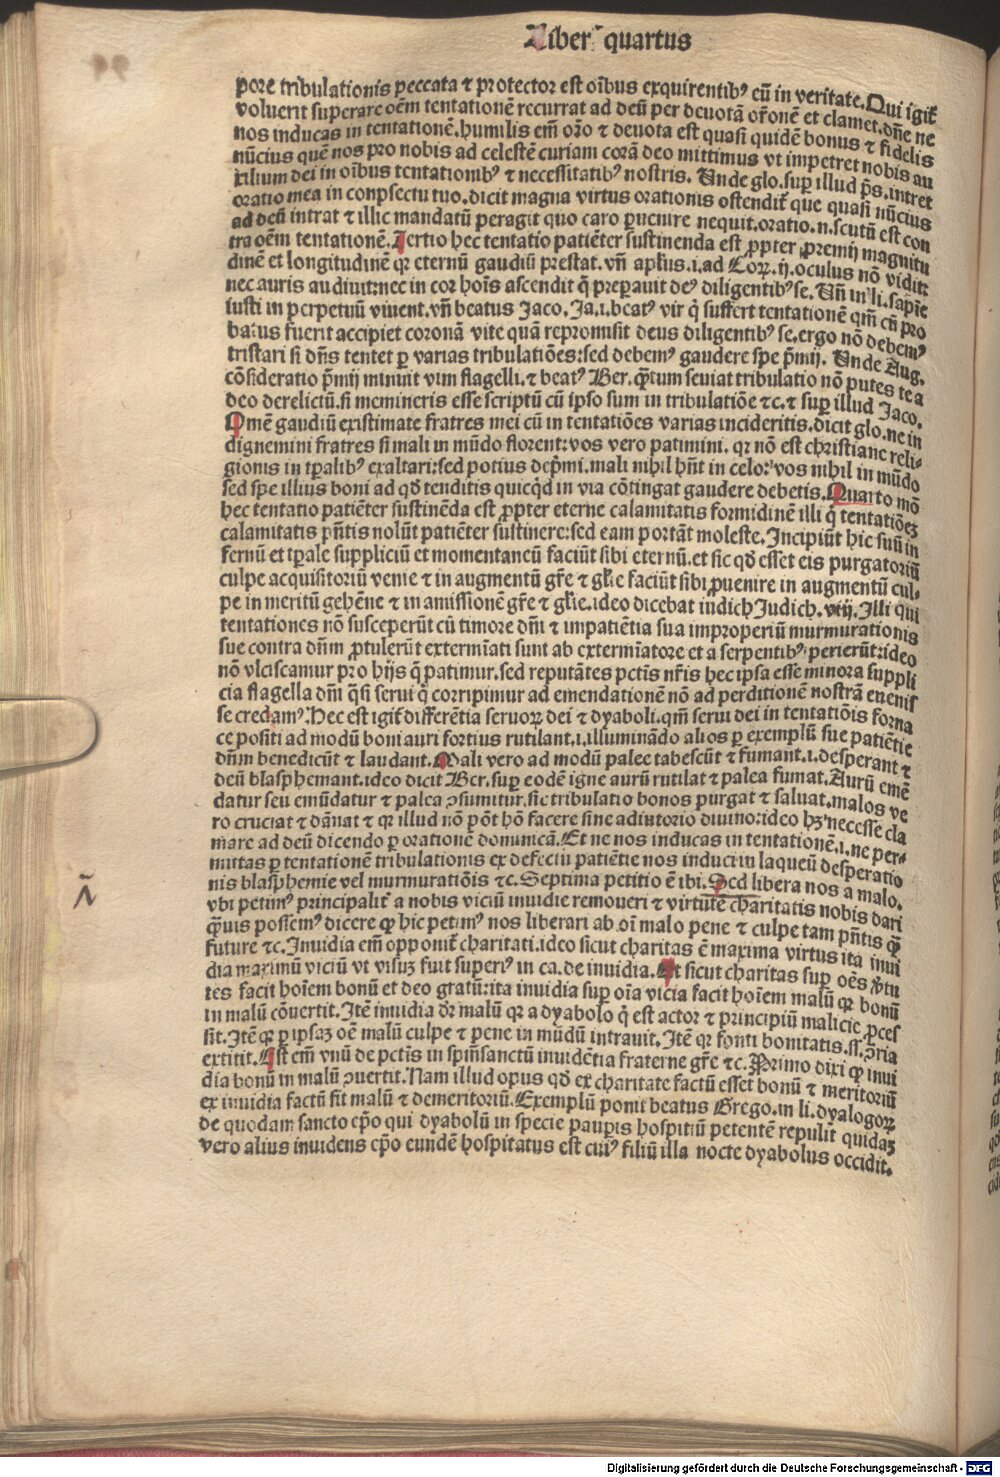 Liber quartus
pore tribulationis peccata ⁊ protector est oībus exquirentibꝰ eū in veritate. Qui igit᷑
voluerit superare oēm tentationē recurrat ad deū per deuotā or̄onē et clamet. dn̄e ne
nos inducas in tentationē. humilis em̄ or̄o ⁊ deuota est quasi quidē bonus ⁊ fidelis
nūcius quē nos pro nobis ad celestē curiam corā deo mittimus vt impetret nobis au
xilium dei in oībus tentationibꝰ ⁊ necessitatibꝰ nostris. Unde glo. suꝑ illud p̄s. intret
oratio mea in conpsectu tuo. dicit magna virtus orationis ostendit᷑ que quasi nūcius
ad deū intrat ⁊ illic mandatū peragit quo caro ꝑuenire nequit. oratio. n. scutū est con
tra oēm tentationē. Tertio hec tentatio patiēter sustinenda est ꝓpter premij magnitu
dinē et longitudinē qꝛ eternū gaudiū prestat. vn̄ aplūs. i. ad Coꝝ. ij. oculus nō vidit:
nec auris audiuit: nec in cor hoīs ascendit q̄ preparauit deꝰ diligentibꝰ se. Un̄ in li. sapiē
iusti in perpetuū viuent. vn̄ beatus Jaco. Ja. i. beatꝰ vir q̇ suffert tentationē qm̄ cū pro
batus fuerit accipiet coronā vite quā repromisit deus diligentibꝰ se. ergo nō debemꝰ
tristari si dn̄s tentet ꝑ varias tribulatiōes: sed debemꝰ gaudere spe p̄mij. Unde Aug.
cōsideratio p̄mij minuit vim flagelli. ⁊ beatꝰ Ber. q̄tum seuiat tribulatio nō putes te a
deo derelictū. si memineris esse scriptū cū ipso sum in tribulatiōe ⁊c. ⁊ suꝑ illud Jaco.
Omē gaudiū existimate fratres mei cū in tentatiōes varias incideritis. dicit glo. ne in
dignemini fratres si mali in mūdo florent: vos vero patimini. qꝛ nō est christiane reli⸗
gionis in tꝑalibꝰ exaltari: sed potius dep̄mi. mali nihil hn̄t in celo: vos nihil in mūdo
sed spe illius boni ad qd̄ tenditis quicq̇d in via cōtingat gaudere debetis. Quarto mō
hec tentatio patiēter sustinēda est ꝓpter eterne calamitatis formidinē illi q̇ tentatiōeꝫ
calamitatis p̄ntis nolūt patiēter sustinere: sed eam portāt moleste. Incipiūt hic suū in
fernū et tꝑale suppliciū et momentaneū faciūt sibi eternū. et sic qd̄ esset eis purgatoriū
culpe acquisitoriū venie ⁊ in augmentū gr̄e ⁊ gl̄ie faciūt sibi ꝓuenire in augmentū cul⸗
pe in meritū gehēne ⁊ in amissionē gr̄e ⁊ gl̄ie. ideo dicebat iudich Judich. viij. Illi qui
tentationes nō susceperūt cū timore dn̄i ⁊ impatiētia sua improperiū murmurationis
sue contra dn̄m ꝓtulerūt extermiati sunt ab extermiatore et a serpentibꝰ perierūt: ideo
nō vlciscamur pro hijs q̄ patimur. sed reputātes pctīs nr̄is hec ipsa esse minora suppli
cia flagella dn̄i q̄si serui q̇ corripimur ad emendationē nō ad perditionē nostrā euenis
se credamꝰ. Hec est igit᷑ differētia seruoꝝ dei ⁊ dyaboli. qm̄ serui dei in tentatiōis forna
ce positi ad modū boni auri fortius rutilant. i. illuminādo alios ꝑ exemplū sue patiētie
dn̄m benedicūt ⁊ laudant. Mali vero ad modū palee tabescūt ⁊ fumant. i. desperant ⁊
deū blasphemant. ideo dicit Ber. suꝑ eodē igne aurū rutilat ⁊ palea fumat. Aurū emē
datur seu emūdatur ⁊ palea ꝯsumitur. sic tribulatio bonos purgat ⁊ saluat. malos ve
ro cruciat ⁊ dānat ⁊ qꝛ illud nō pōt hō facere sine adiutorio diuino: ideo hꝫ necesse cla
mare ad deū dicendo ꝑ orationē dominicā. Et ne nos inducas in tentationē. i. ne per⸗
mittas ꝑ tentationē tribulationis ex defectu patiētie nos induci in laqueū desperatio
nis blasphemie vel murmuratiōis ⁊c. Septima petitio ē ibi. Sed libera nos a malo.
vbi petimꝰ principalit᷑ a nobis viciū inuidie remoueri ⁊ virtutē charitatis nobis dari
q̄uis possemꝰ dicere ꝙ hic petimꝰ nos liberari ab oī malo pene ⁊ culpe tam p̄ntis q̄
future ⁊c. Inuidia em̄ opponit᷑ charitati. ideo sicut charitas ē maxima virtus ita inui
dia maximū viciū vt visuꝫ fuit superiꝰ in ca. de inuidia. Et sicut charitas suꝑ oēs v̄tu
tes facit hoīem bonū et deo gratū: ita inuidia suꝑ oīa vicia facit hoīem malū qꝛ bonū
in malū cōuertit. Itē inuidia dr̄ malū qꝛ a dyabolo q̇ est actor ⁊ principiū malicie ꝓces
sit. Itē qꝛ ꝑ ipsaꝫ oē malū culpe ⁊ pene in mūdū intrauit. Itē qꝛ fonti bonitatis. ss. ꝯria
extitit. Est em̄ vnū de pctīs in spm̄sanctū inuidētia fraterne gr̄e ⁊c. Primo dixi ꝙ inui
dia bonū in malū ꝯuertit. Nam illud opus qd̄ ex charitate factū esset bonū ⁊ meritoriū
ex inuidia factū fit malū ⁊ demeritoriū. Exemplū ponit beatus Grego. in li. dyalogoꝝ
de quodam sancto ep̄o qui dyabolū in specie pauꝑis hospitiū petentē repulit quidaꝫ
vero alius inuidens ep̄o eundē hospitatus est cuiꝰ filiū illa nocte dyabolus occidit.
Digitalisierung gefördert durch die Deutsche Forschungsgemeinschaft - DFG